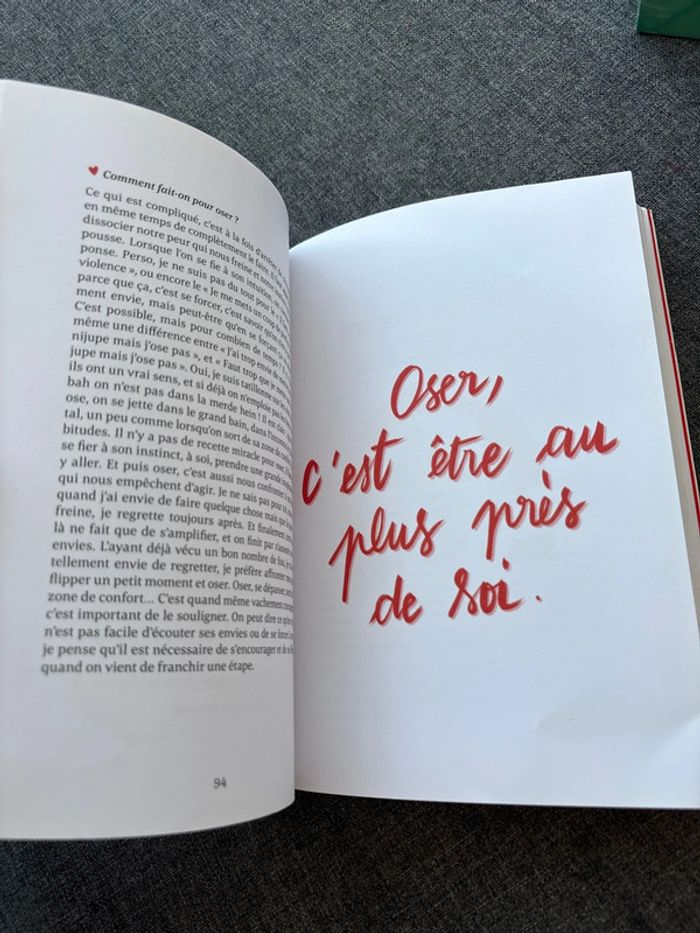 Comment fait-on pour oser ?
Ce qui est compliqué, c'est à la fois d'arrêter de
en même temps de complètement le faire. Il faut
dissocier notre peur qui nous freine et notre
pousse. Lorsque l'on se fie à son intuition, on
ponse. Perso, je ne suis pas du tout pour le «
violence », ou encore le « Je me mets un coup de
parce que ça, c'est se forcer, c'est savoir qu'on
ment envie, mais peut-être qu'en se forçant ça
C'est possible, mais pour combien de temps ?
même une différence entre « J'ai trop envie de
nijupe mais j'ose pas », et « Faut trop que je
jupe mais j'ose pas ». Oui, je suis tatillonne sur
ils ont un vrai sens, et si déjà on n'emploie pas
bah on n'est pas dans la merde hein ! Il est
ose, on se jette dans le grand bain, dans l'inconnu
tal, un peu comme lorsqu'on sort de sa zone de
bitudes. Il n'y a pas de recette miracle pour oser,
se fier à son instinct, à soi, prendre une grande
y aller. Et puis oser, c'est aussi nous confronter
qui nous empêchent d'agir. Je ne sais pas pour toi,
quand j'ai envie de faire quelque chose mais que
freine, je regrette toujours après. Et finalement
là ne fait que de s'amplifier, et on finit par
envies. L'ayant déjà vécu un bon nombre de fois,
tellement envie de regretter, je préfère affronter
flipper un petit moment et oser. Oser, se dépasser,
zone de confort... C'est quand même vachement
c'est important de le souligner. On peut dire ce qu'on
n'est pas facile d'écouter ses envies ou de se forcer à
je pense qu'il est nécessaire de s'encourager et de
quand on vient de franchir une étape.
94
Oser,
c'est être au
plus près
de soi.